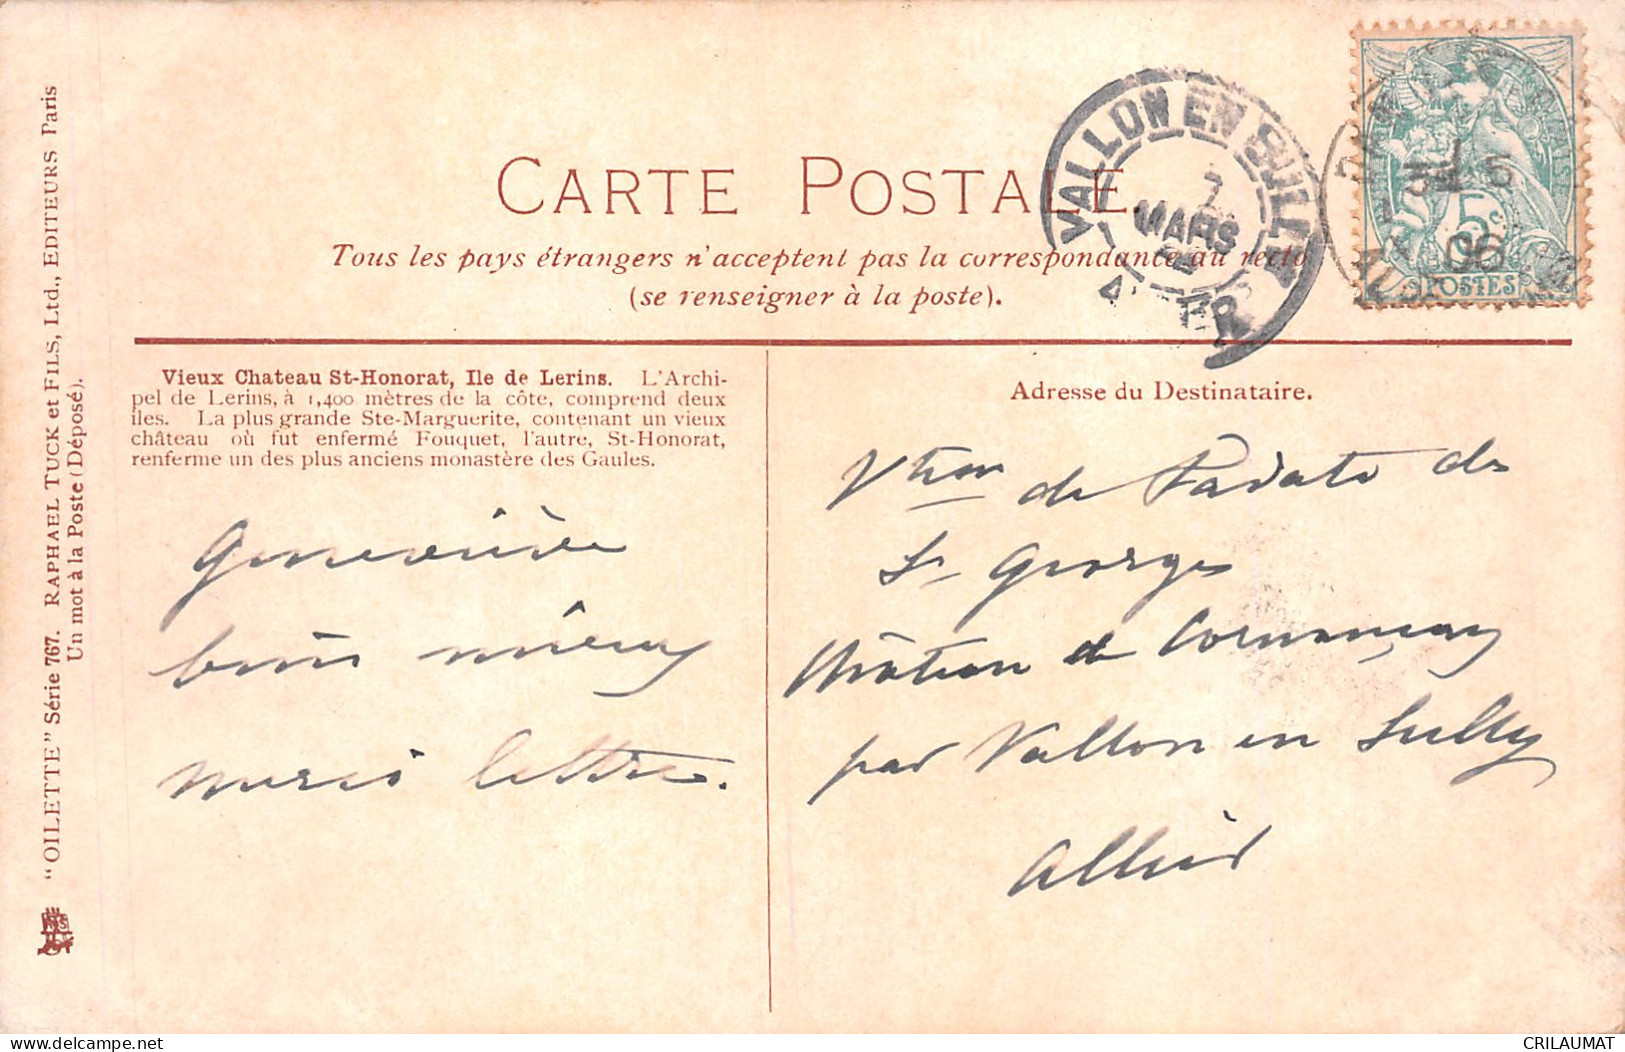 CARTE POSTALE.
Tous les pays étrangers n'acceptent pas la correspondance au recto
(se renseigner à la poste).
VALLON EN SULLY
7
MARS
ALLIER
5
06
5c
POSTES
"OILETTE" Série 767. RAPHAEL TUCK et FILS, Ltd., EDITEURS Paris
Un mot à la Poste (Déposé).
Vieux Chateau St-Honorat, Ile de Lerins. L'Archi-
pel de Lerins, à 1,400 mètres de la côte, comprend deux
îles. La plus grande Ste-Marguerite, contenant un vieux
château où fut enfermé Fouquet, l'autre, St-Honorat,
renferme un des plus anciens monastère des Gaules.
Geneviève
bien mieux
merci lettre.
Adresse du Destinataire.
Vtesse de Sadate de
St Georges
Château de Cornançay
par Vallon en Sully
Allier
delcampe.net
CRILAUMAT